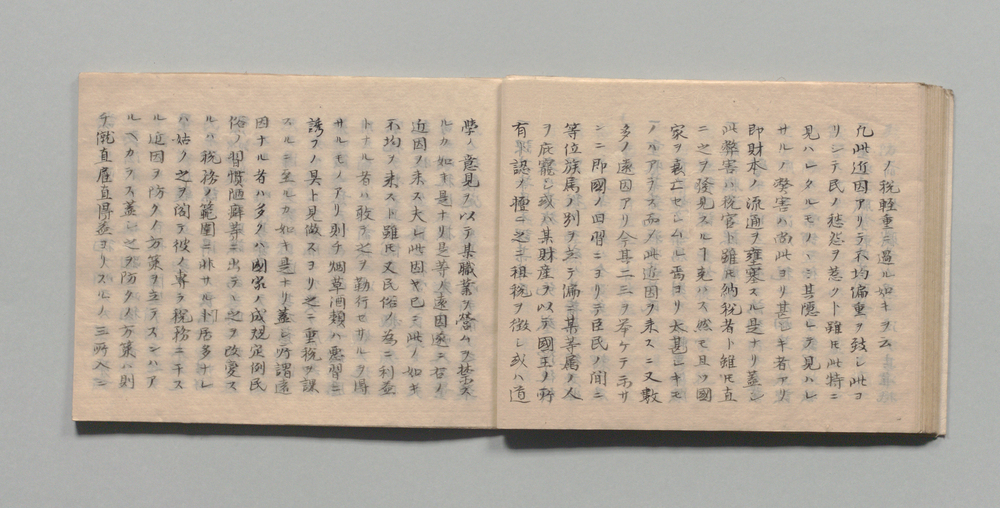 ノ税軽重ニ過ル如キヲ云
凡此近因アリテ不均偏重ヲ致シ此ヨ
リシテ民ノ愁怨ヲ惹クト雖𪜈此特ニ
見ハレタルモノノミ其隠レテ見ハレ
サルノ弊害ハ尚此ヨリ甚シキ者アリ
即財本ノ流通ヲ壅塞スル是ナリ蓋シ
此弊害ハ税官ト雖𪜈納税者ト雖𪜈直
ニ之ヲ発見スル丁克ハス然モ且ツ国
家ヲ衰亡セシムル焉ヨリ太甚シキモ
ノハアラス而メ此近因ヲ来スニ又数
多ノ遠因アリ今其二三ヲ挙ケテ示サ
ンニ即国ノ旧習ニヨリテ臣民ノ間ニ
等位族属ノ別ヲ立テ偏ニ某等属ノ人
ヲ庇寵シ或ハ某財産ヲ以テ国王ノ所
有ト認メ擅ニ之ニ租税ヲ徴シ或ハ道
学ノ意見ヲ以テ某職業ヲ営ムヲ禁ス
ルカ如キ是ナリ是等ノ遠因遂ニ右ノ
近因ヲ来ス夫レ此因ヤ已ニ此ノ如キ
不均ヲ来スト雖𪜈又民俗ノ為ニ利益
トナル者ハ敢テ之ヲ勤行セサルヲ得
サルモノアリ則チ烟草酒類ハ悪習ニ
誘フノ具ト見做スヨリ之ニ重税ヲ課
スルニ至ルカ如キ是ナリ蓋シ所謂遠
因ナル者ハ多クハ国家ノ成規定例民
俗ノ習慣陋癖等ニ出テ之ヲ改変ス
ルハ税務ノ範囲ニ非サル丁居多ナレ
ハ姑ク之ヲ閣テ彼ノ専ラ税務ニ干ス
ル近因ヲ防クノ方策ヲ立テスンハア
ルヘカラス蓋シ之ヲ防クノ方策ハ則
チ価直雇直得益ヨリスルノ三所入ニ